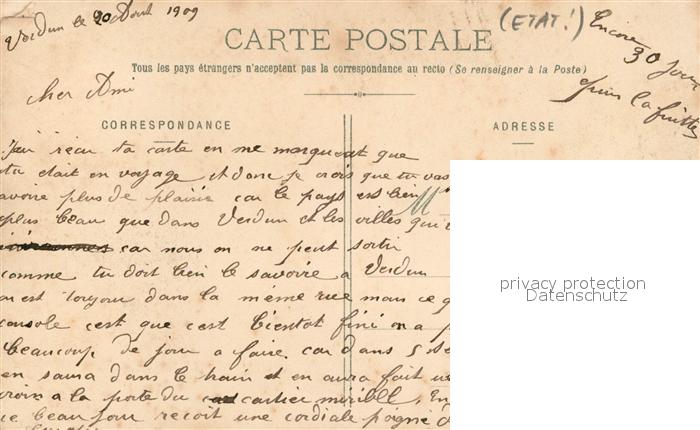 Verdun le 20 Aout 1909
(ETAT!)
Encore
30 jours
puis la fuitte
CARTE POSTALE
Tous les pays étrangers n'acceptent pas la correspondance au recto (Se renseigner à la Poste)
cher Ami
CORRESPONDANCE
ADRESSE
J'ai recu ta carte en me marquant que
tu etait en voyage et donc je crois que tu vas
avoire plus de plaisir car le pays est bien
plus beau que dans Verdun et les villes qui
car nous on ne peut sortir
comme tu doit bien le savoire a Verdun
on est toujour dans la même rue mais ce q
console c'est que c'est bientot fini on a p
beaucoup de jour a faire. car dans 5
en saura dans le train et en aura fait
croix a la porte du cartier En
ce beau jour recoit une cordiale poigné d
privacy protection
Datenschutz